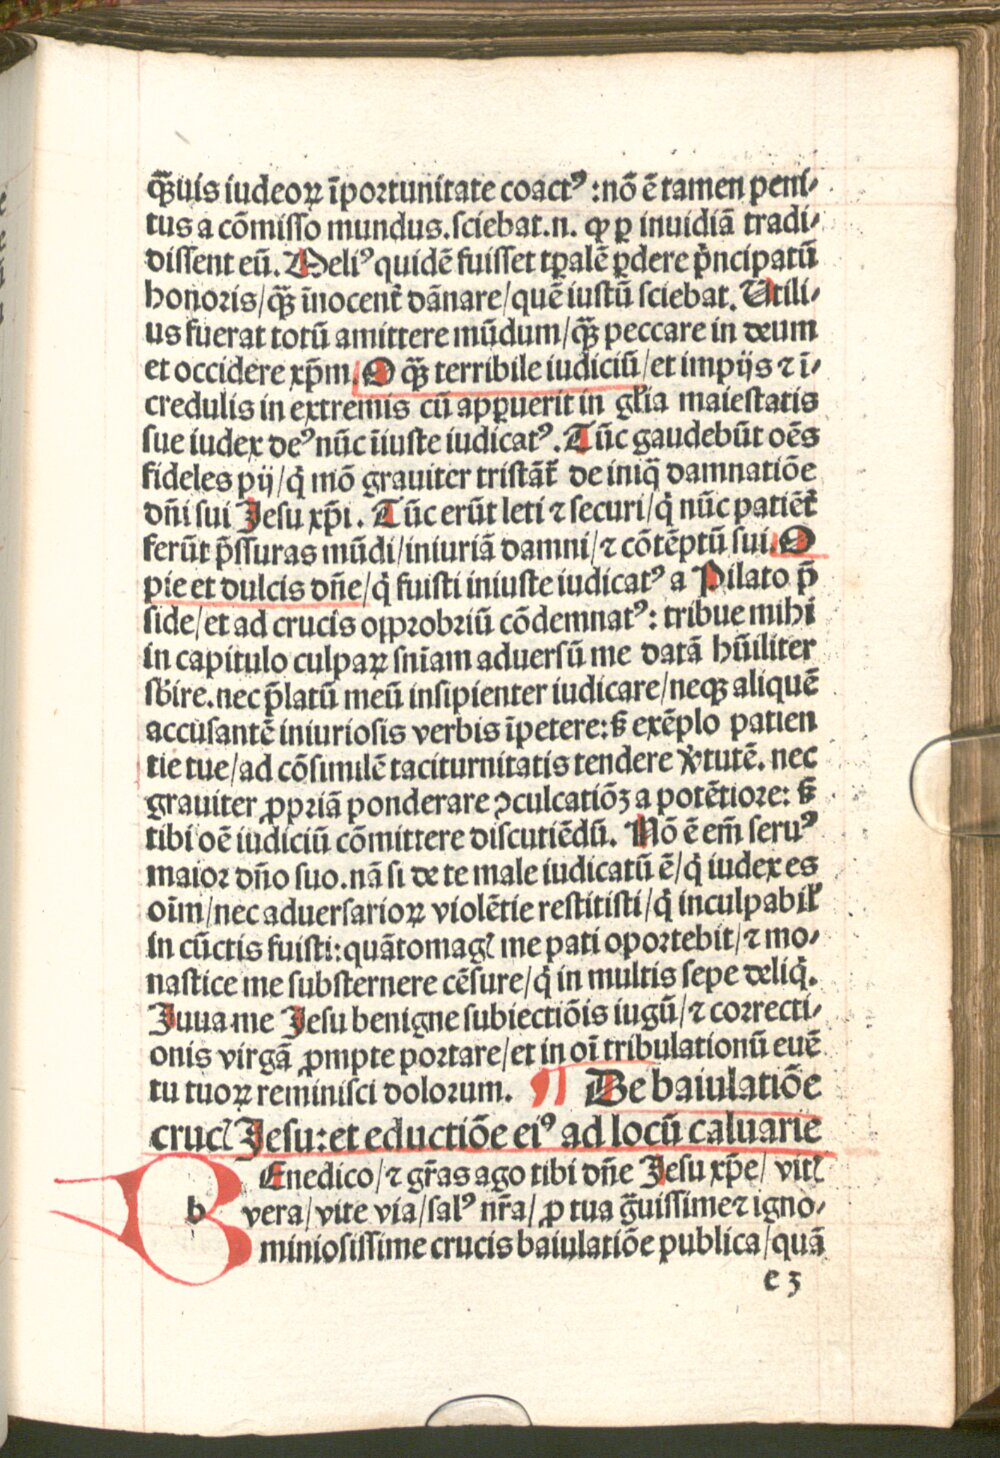 qͣ̄uis iudeoꝝ īportunitate coactꝰ: nō ē tamen peni⸗
tus a cōmisso mundus. sciebat .n. ꝙ ꝑ inuidiā tradi⸗
dissent eū. Meliꝰ quidē fuisset tꝑalē ꝑdere pͥncipatū
honoris/ qͣ̄ īnocentē dānare/ quē iustū sciebat. Utili⸗
us fuerat totū amittere mūdum/ qͣ̄ peccare in deum
et occidere xp̄m. O qͣ̄ terribile iudiciū/ et impijs ⁊ ī⸗
credulis in extremis cū apꝑuerit in gl̄ia maiestatis
sue iudex deꝰ nūc īiuste iudicatꝰ. Tūc gaudebūt oēs
fideles pij/ qͥ mō grauiter tristāt̄ de iniqͣ damnatiōe
dn̄i sui Jesu xp̄i. Tūc erūt leti ⁊ securi/ qͥ nūc patiēt̄
ferūt p̄ssuras mūdi/ iniuriā damni/ ⁊ cōtēptū sui. O
pie et dulcis dn̄e/ qͥ fuisti iniuste iudicatꝰ a Pilato p̄
side/ et ad crucis opprobriū cōdemnatꝰ: tribue mihi
in capitulo culpaꝝ sniam aduersū me datā hūiliter
sb̄ire. nec p̄latū meū insipienter iudicare/ neqꝫ aliquē
accusantē iniuriosis verbis īpetere: sꝫ exēplo patien
tie tue/ ad cōsimilē taciturnitatis tendere v̓tutē. nec
grauiter ꝓpriā ponderare ꝯculcatiōꝫ a potētiore: sꝫ
tibi oē iudiciū cōmittere discutiēdū. Nō ē em̄ seruꝰ
maior dn̄o suo. nā si de te male iudicatū ē/ qͥ iudex es
oīm/ nec aduersarioꝝ violētie restitisti/ qͥ inculpabil̓
in cūctis fuisti: quātomagꝭ me pati oportebit/ ⁊ mo⸗
nastice me substernere cēsure/ qͥ in multis sepe deliqͥ.
Juua me Jesu benigne subiectiōis iugū/ ⁊ correcti⸗
onis virgā ꝓmpte portare/ et in oī tribulationū euē
tu tuoꝝ reminisci dolorum. ¶ De baiulatiōe
crucꝭ Jesu: et eductiōe eiꝰ ad locū caluarie
b Enedico/ ⁊ gr̄as ago tibi dn̄e Jesu xp̄e/ vitꝭ
vera/ vite via/ salꝰ nr̄a/ ꝓ tua gͣuissime ⁊ igno⸗
miniosissime crucis baiulatiōe publica/ quā
e 3